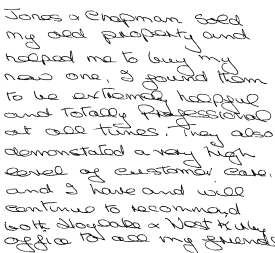 Jones & Chapman sold
my old property and
helped me to buy my
new one. I found them
to be extremely helpful
and totally professional
at all times. They also
demonstrated a very high
level of customer care,
and I have and will
continue to recommend
both Hoylake & West Kirby
office to all my friends